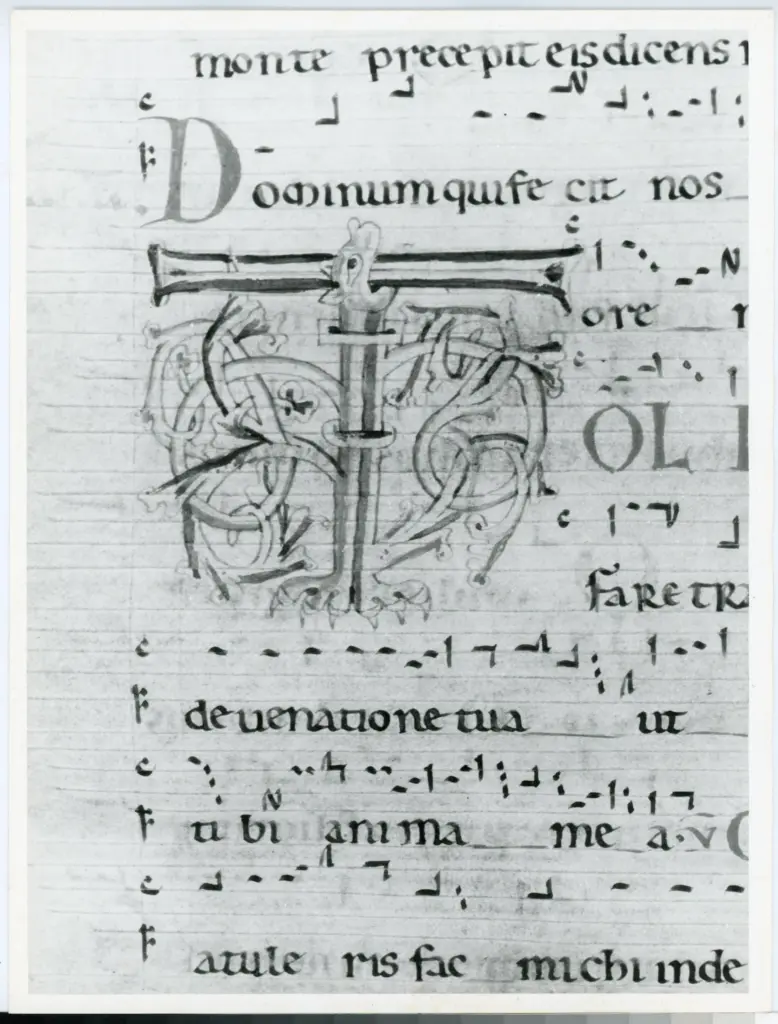 monte precepit eis dicens
Dominum qui fecit nos
ore
T OL
fare tr
de uenatione tua ut
tibi anima mea. v
atule ris fac michi inde